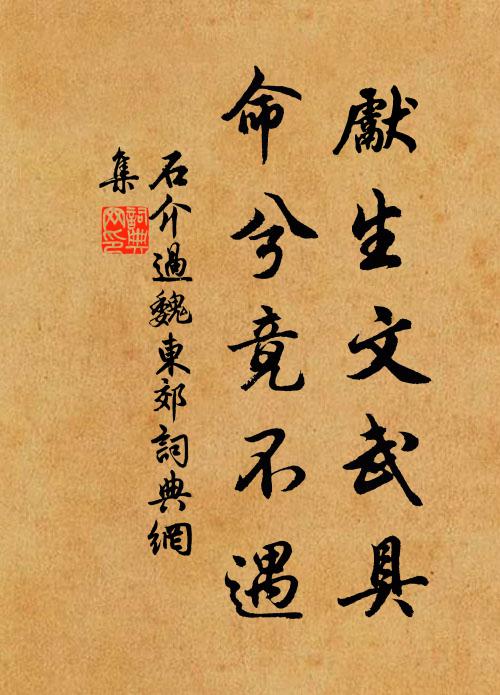 獻生文武具
命兮竟不遇
石介過魏東郊詞典網
集
詞典
網印